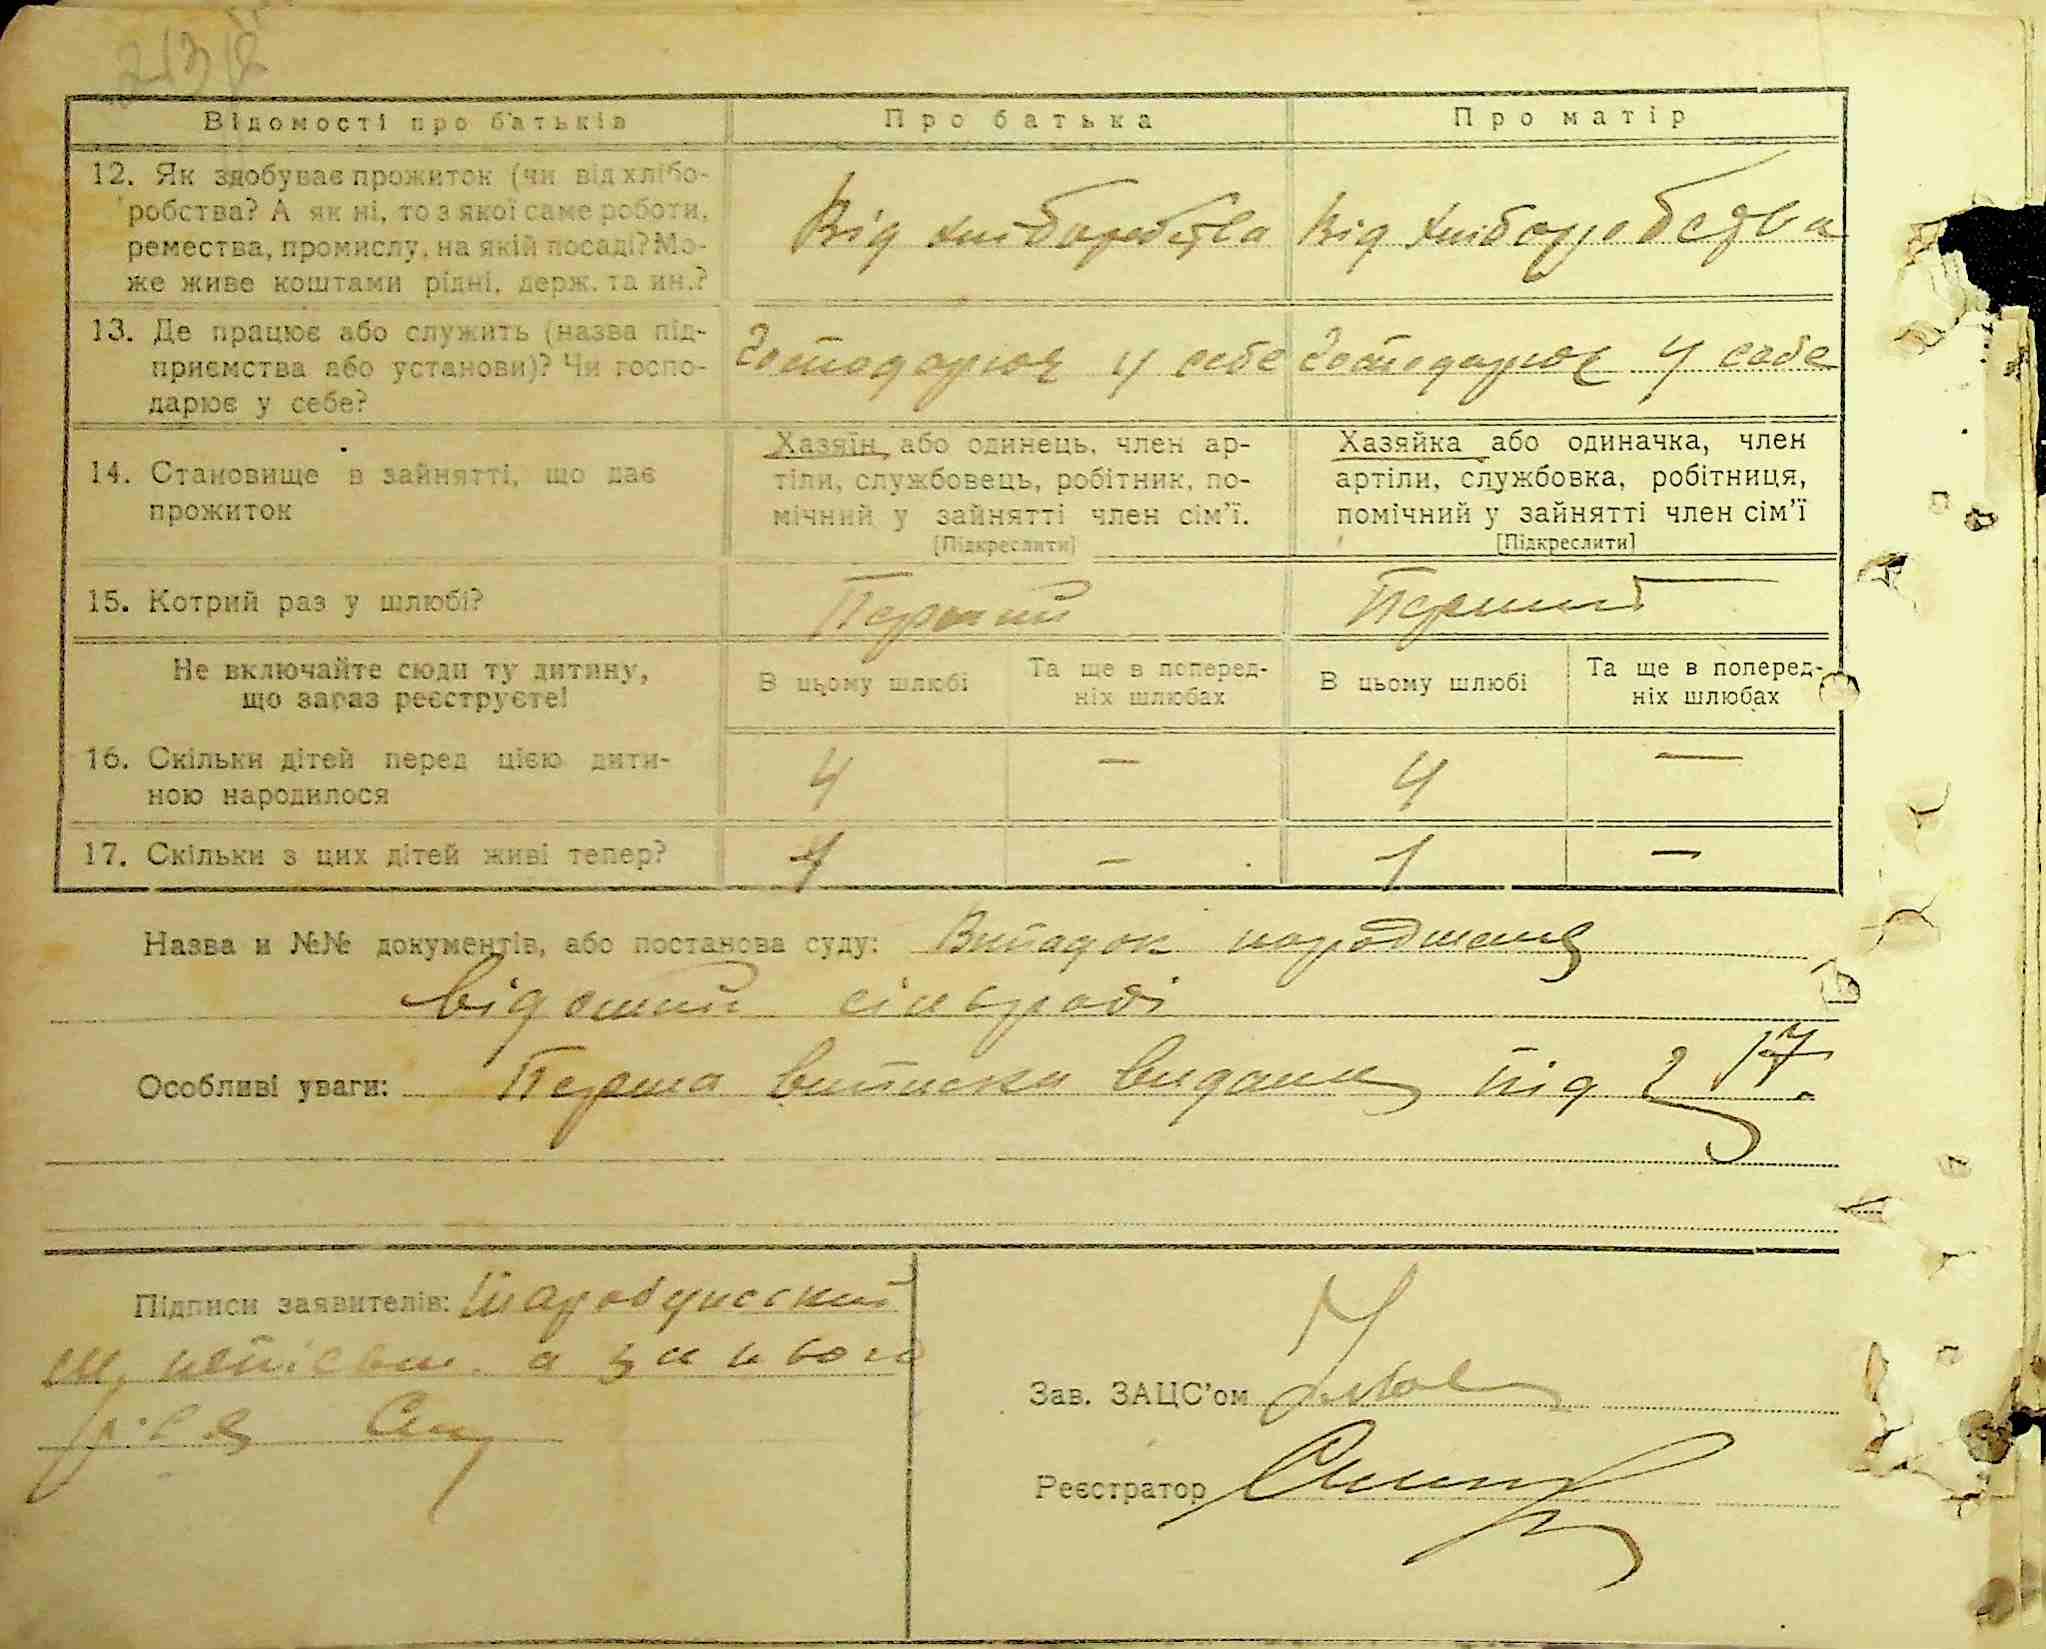 Відомості про батьків
Про батька
Про матір
12. Як здобуває прожиток (чи від хлібо-
робства? А як ні, то з якої саме роботи,
ремества, промислу, на якій посаді? Мо-
же живе коштами рідні, держ. та ин.?
Від хліборобства
Від хліборобства
13. Де працює або служить (назва під-
приємства або установи)? Чи госпо-
дарює у себе?
Господарює у себе
Господарює у себе
14. Становище в зайнятті, що дає
прожиток
Хазяїн, або одинець, член ар-
тіли, службовець, робітник, по-
мічний у зайнятті член сім'ї.
[Підкреслити]
Хазяйка або одиначка, член
артіли, службовка, робітниця,
помічний у зайнятті член сім'ї
[Підкреслити]
15. Котрий раз у шлюбі?
Перший
Перший
Не включайте сюди ту дитину,
що зараз реєструєте!
В цьому шлюбі
Та ще в поперед-
ніх шлюбах
В цьому шлюбі
Та ще в поперед-
ніх шлюбах
16. Скільки дітей перед цією дити-
ною народилося
4
—
4
—
17. Скільки з цих дітей живі тепер?
1
—
1
—
Назва и №№ документів, або постанова суду: Випадок народження
відомий сільраді
Особливі уваги: Перша виписка видана під 17.
Підписи заявителів:
неписьм. а за нього
Зав. ЗАЦС'ом
Реєстратор